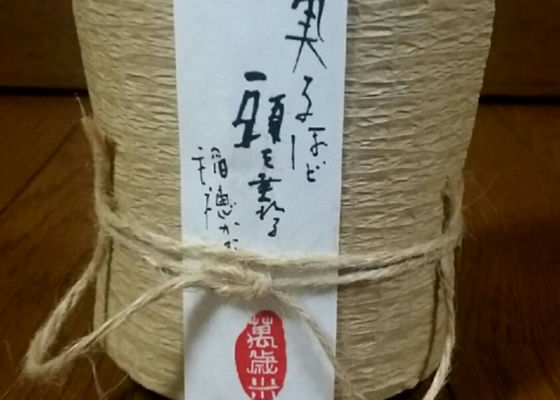 実るほど
頭を垂れる
稲穂かな
萬歳米